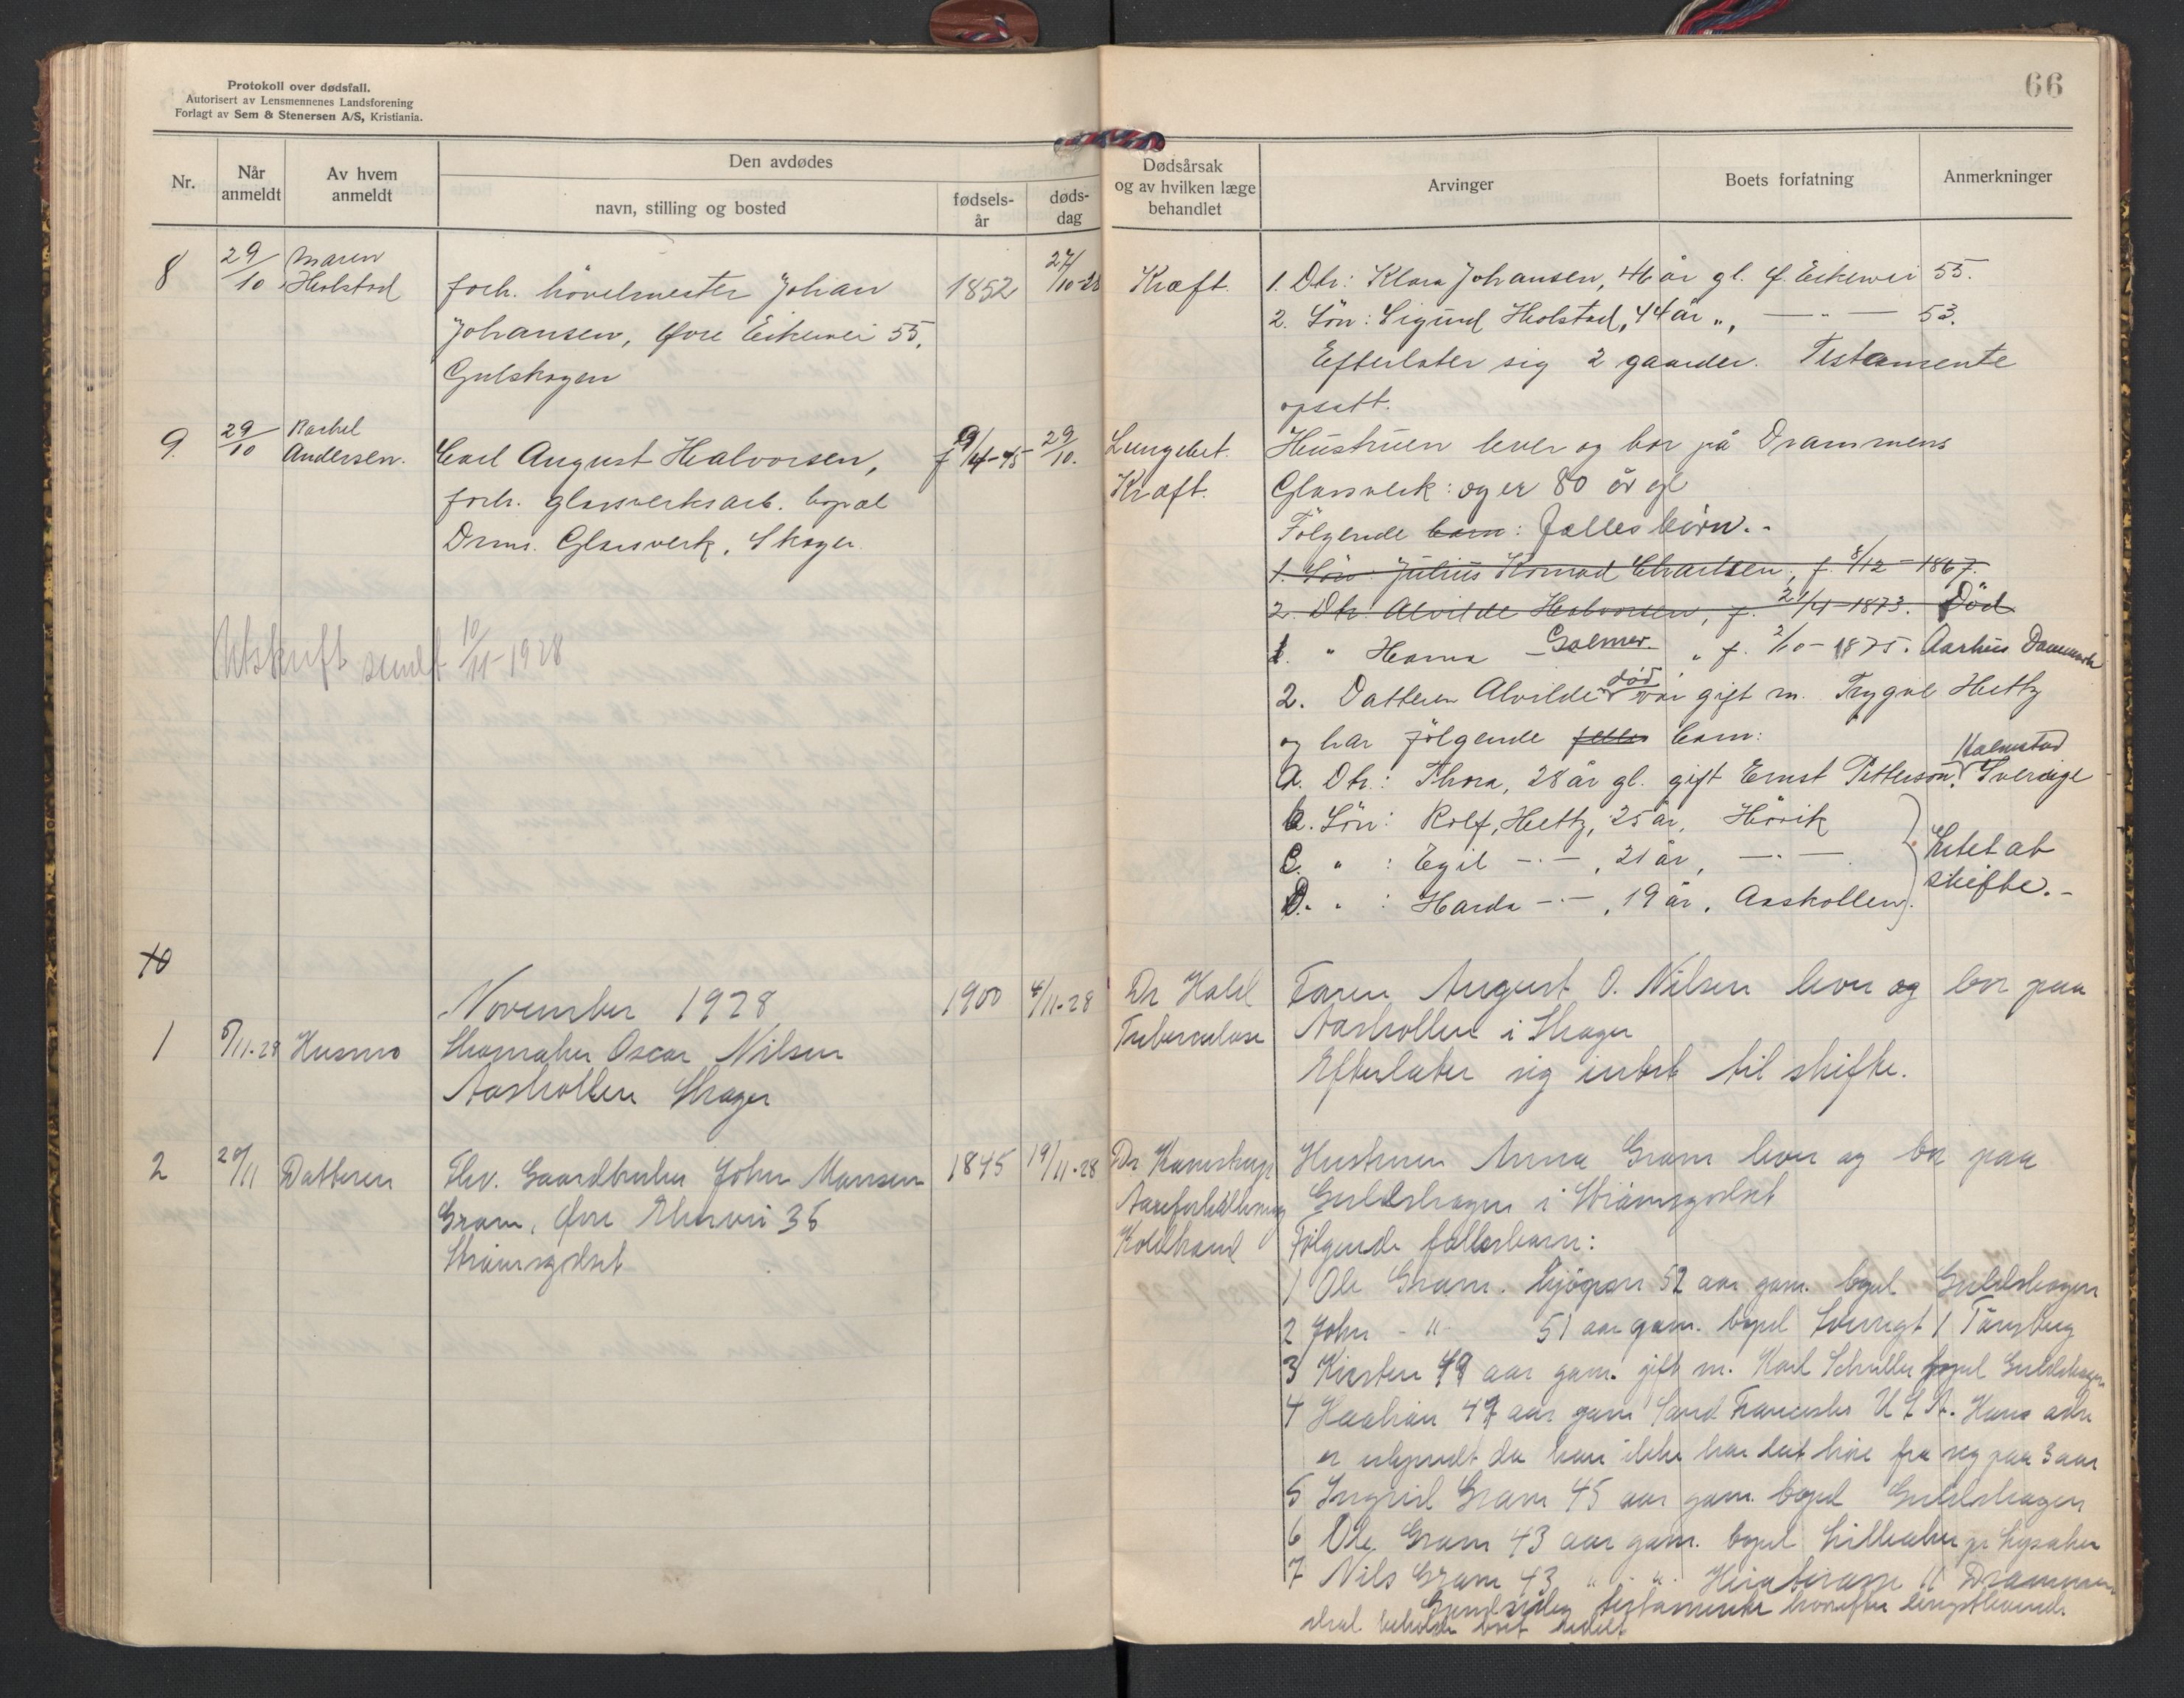 Protokoll over dødsfall.
Autorisert av Lensmennenes Landsforening
Forlagt av Sem & Stenersen A/S, Kristiania.
66
Nr.
Når anmeldt
Av hvem anmeldt
Den avdødes
navn, stilling og bosted
fødsels-år
døds-dag
Dødsårsak og av hvilken læge behandlet
Arvinger
Boets forfatning
Anmerkninger
8 29/10 Maren Holstad forh. hövelmester Johan 1852 27/10-28 Kræft. 1. Dtr: Klara Johansen, 46 år gl. Ø. Eikervei 55.
Johansen, Øvre Eikervei 55, 2. Sön: Sigurd Holstad, 44 år „, — " — 53.
Gulskogen Efterlater sig 2 gaarder. Testamente
opsatt.
9. 29/10 Rachel Andersen. Carl August Halvorsen, f 9/4-45 29/10. Lungebet. Hustruen lever og bor på Drammens
forh. glassverksarb. bopæl Kræft. Glassverk: og er 80 år gl
Drms. Glassverk, Skoger. Følgende barn: fælles börn.-
1. Sön: Julius Konrad Charlsen, f. 8/12-1867.
2. Dtr. Alvilde Halvorsen, f. 29/4-1873. Död
Utskrift sendt 10/11-1928
1. " Hanna Galmer. „ f. 2/10-1875. Aarhus Danmark
2. Datteren Alvilde död var gift m. Trygve Heltz
og har følgende felles barn:
A. Dtr.: Thora, 28 år gl. gift Ernst Petterson, Halmstad Sverige
b. Sön: Rolf, Heltz, 25 år, Hövik
C. " : Egil -"-, 21 år, -"-.
D. " : Harda -"-, 19 år, Aaskollen. Intet at skifte.-
10
November 1928 1900 4/11-28 Dr Hald Faren August O. Nilsen lever og bor paa
1 5/11-28 Husmo Skomaker Oscar Nilsen Tuberculose Aaskollen i Skoger
Aaskollen Skoger Efterlater sig intet til skifte.
2 20/11 Datteren Fhv. Gaardbruker John Hansen 1845 19/11-28 Dr Kamstrup Hustruen Anna Gram lever og bor paa
Gram, Øvre Eikervei 36 Aareforkalkning Guldskogen i Strömsgodset
Strömsgodset Koldbrand Følgende fællesbarn:
1 Ole Gram. 52 aar gam. bopel Guldskogen
2 John -"- 51 aar gam. bopel Tönsberg
3 Kirsten 49 aar gam. gift m. Karl Schuller bopel Guldskogen
4 Haakon 47 aar gam Sand Francisko U.S.A. Hans adr
er ukjendt da han ikke har latt höre fra seg paa 3 aar
5 Ingrid Gram 45 aar gam. bopel Guldskogen
6 Ole Gram 43 aar gam. bopel Lilleaker pr Lysaker
7 Nils Gram 43 " " " Drammen
Gjensidig testamente hvorefter lengstlevende
skal beholde boet udelt